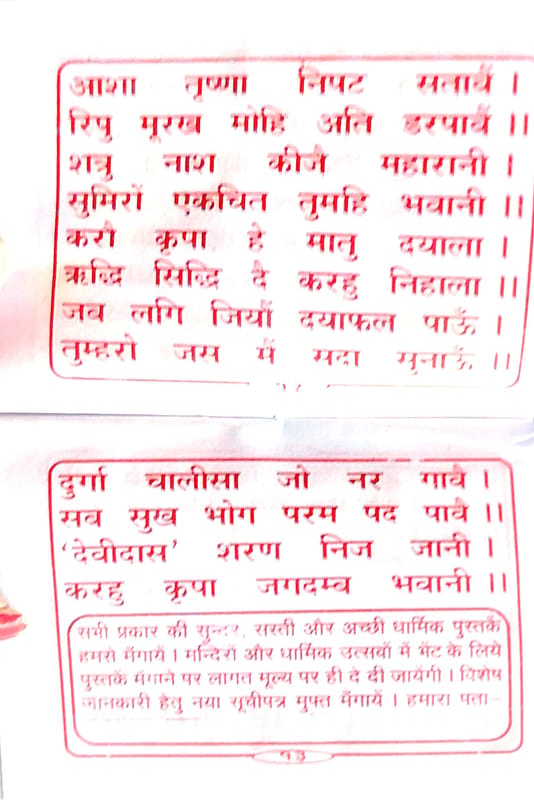 आशा तृष्णा निपट सतावें ।
रिपु मूरख मोहि अति डरपावें ।।
शत्रु नाश कीजै महारानी ।
सुमिरों एकचित तुमहि भवानी ।।
करौ कृपा हे मातु दयाला ।
ऋद्धि सिद्धि दै करहु निहाला ।।
जब लगि जियौं दयाफल पाऊँ ।
तुम्हरो जस मैं सदा सुनाऊँ ।।
दुर्गा चालीसा जो नर गावै ।
सब सुख भोग परम पद पावै ।।
'देवीदास' शरण निज जानी ।
करहु कृपा जगदम्ब भवानी ।।
सभी प्रकार की सुन्दर, सस्ती और अच्छी धार्मिक पुस्तकें
हमसे मँगायें । मन्दिरों और धार्मिक उत्सवों में भेंट के लिये
पुस्तकें मंगाने पर लागत मूल्य पर ही दे दी जायेंगी । विशेष
जानकारी हेतु नया सूचीपत्र मुफ्त मँगायें । हमारा पता-
१३